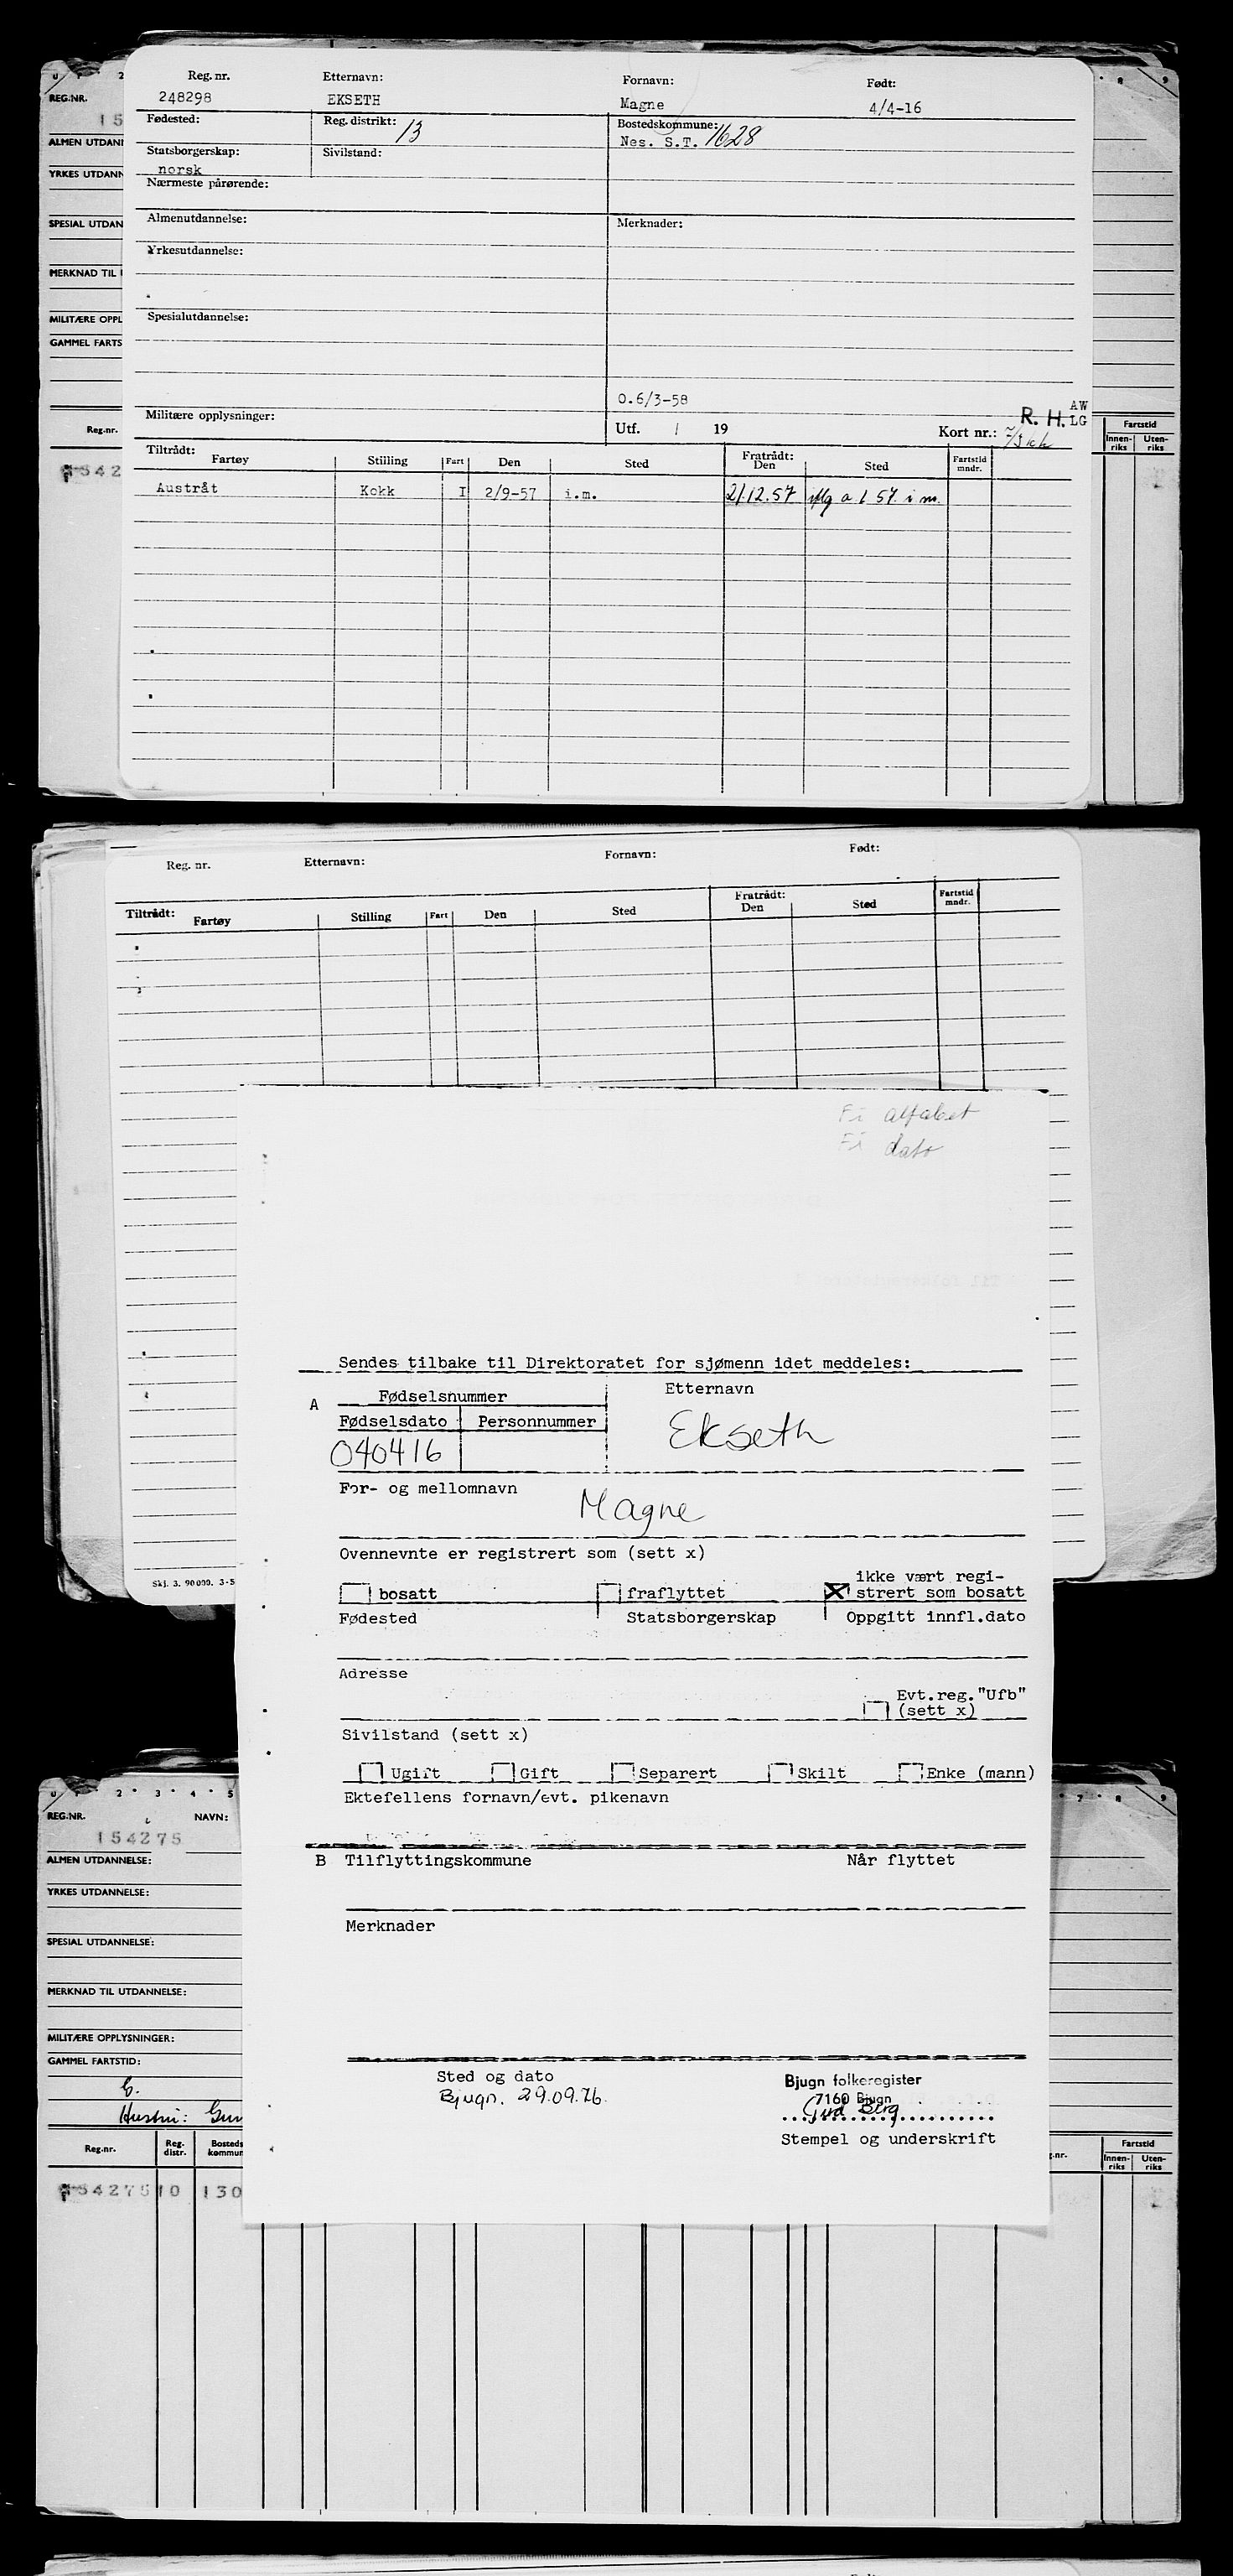 Reg. nr. Etternavn: Fornavn: Født:
248298 EKSETH Magne 4/4-16
Fødested: Reg. distrikt: 13 Bostedskommune: 1628
Nes. S.T.
Statsborgerskap: Sivilstand:
norsk
Nærmeste pårørende:
Almenutdannelse: Merknader:
Yrkesutdannelse:
Spesialutdannelse:
O.6/3-58
Militære opplysninger: R. H. AW
LG
Utf. / 19 Kort nr.:
Tiltrådt: Fratrådt:
Fartøy Stilling Fart Den Sted Den Sted Fartstid
mndr.
Austråt Kokk I 2/9-57 i.m. 21.12.57 iflg a l 57. i m.
REG.NR.
15
ALMEN UTDANN
YRKES UTDANN
SPESIAL UTDAN
MERKNAD TIL
MILITÆRE OPPL
GAMMEL FARTS
Reg.nr.
542
8 9
Fartstid
Innen-
riks
Uten-
riks
Reg. nr. Etternavn: Fornavn: Født:
Tiltrådt: Fratrådt:
Fartøy Stilling Fart Den Sted Den Sted Fartstid
mndr.
Skj. 3. 90000. 3-5
Fi alfabet
Fi dato
Sendes tilbake til Direktoratet for sjømenn idet meddeles:
A Fødselsnummer Etternavn
Fødselsdato Personnummer Ekseth
040416
For- og mellomnavn
Magne
Ovennevnte er registrert som (sett x)
bosatt fraflyttet ikke vært regi-
strert som bosatt
Fødested Statsborgerskap Oppgitt innfl.dato
Adresse
Evt.reg."Ufb"
(sett x)
Sivilstand (sett x)
Ugift Gift Separert Skilt Enke (mann)
Ektefellens fornavn/evt. pikenavn
B Tilflyttingskommune Når flyttet
Merknader
Sted og dato Bjugn folkeregister
Bjugn. 29.09.76. 7160 Bjugn
Berg
Stempel og underskrift
0 1 2 3 4 5
REG.NR. NAVN:
154275
ALMEN UTDANNELSE:
YRKES UTDANNELSE:
SPESIAL UTDANNELSE:
MERKNAD TIL UTDANNELSE:
MILITÆRE OPPLYSNINGER:
GAMMEL FARTSTID:
G.
Hustru: Gun
Reg.nr. Reg.
distr. Bosteds
kommun
54275 10 130
7 8 9
g.nr. Fartstid
Innen-
riks
Uten-
riks